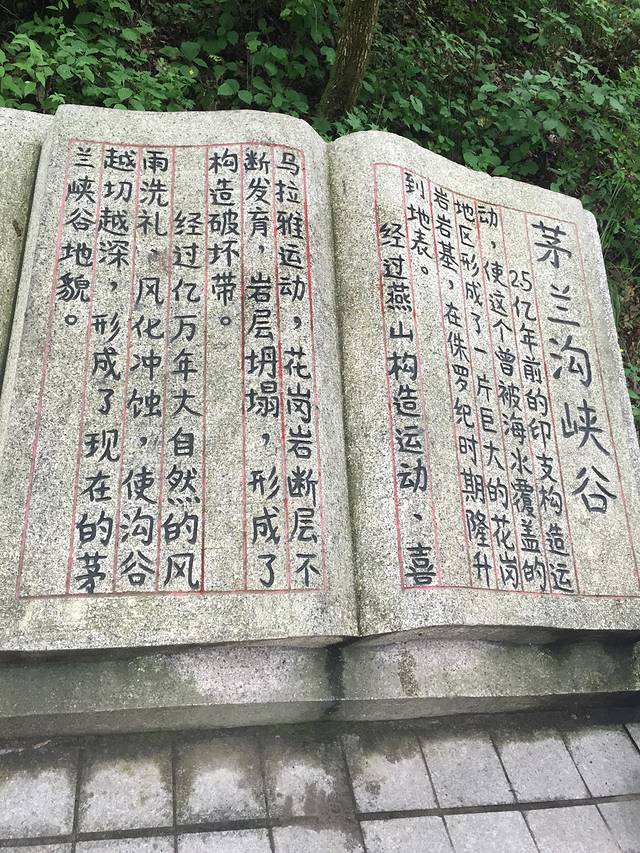 茅兰沟峡谷
25亿年前的印支构造运
动，使这个曾被海水覆盖的
地区形成了一片巨大的花岗
岩岩基，在侏罗纪时期隆升
到地表。
经过燕山构造运动、喜
马拉雅运动，花岗岩断层不
断发育，岩层坍塌，形成了
构造破坏带。
经过亿万年大自然的风
雨洗礼，风化冲蚀，使沟谷
越切越深，形成了现在的茅
兰峡谷地貌。